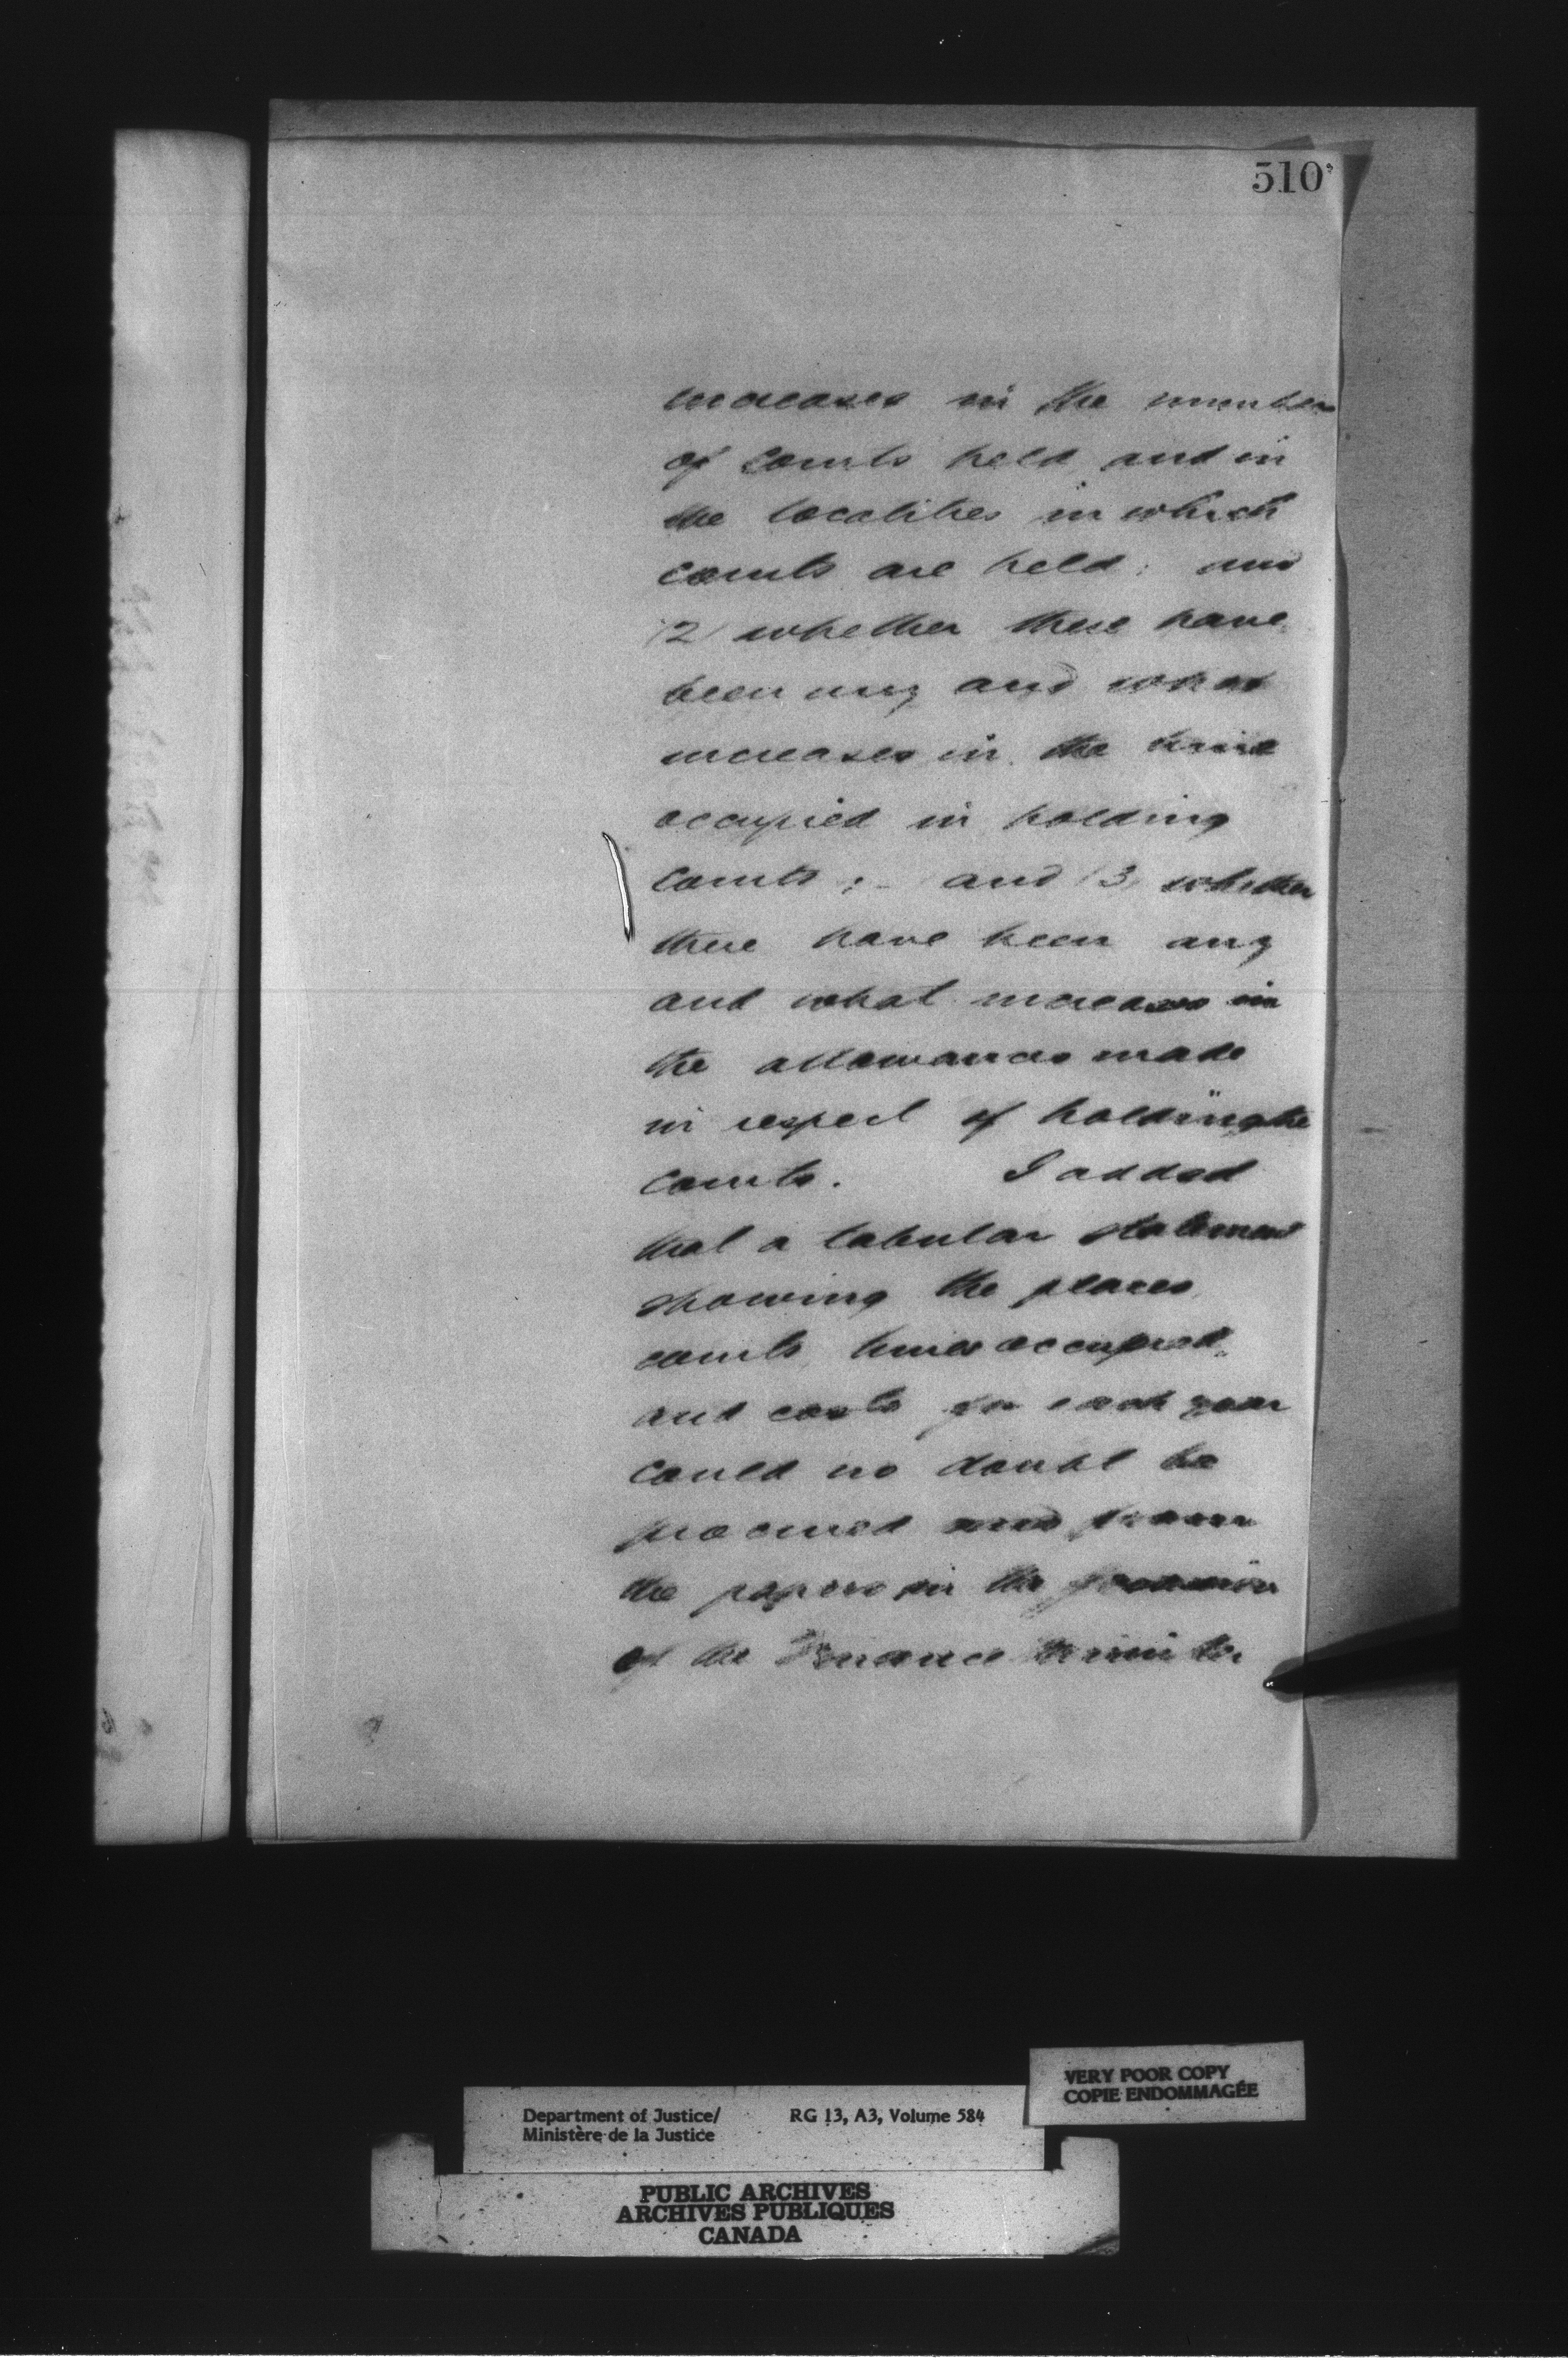 510
increases in the number
of courts held and in
the localities in which
courts are held; and
(2) whether there have
been any and what
increases in the time
occupied in holding
courts; - and (3) whether
there have been any
and what increases in
the allowances made
in respect of holding the
courts. I added
that a tabular statement
showing the places,
courts, times occupied,
and costs for each year
could no doubt be
procured from
the papers in the possession
of the Finance Minister
VERY POOR COPY
COPIE ENDOMMAGÉE
Department of Justice/ RG 13, A3, Volume 584
Ministère de la Justice
PUBLIC ARCHIVES
ARCHIVES PUBLIQUES
CANADA